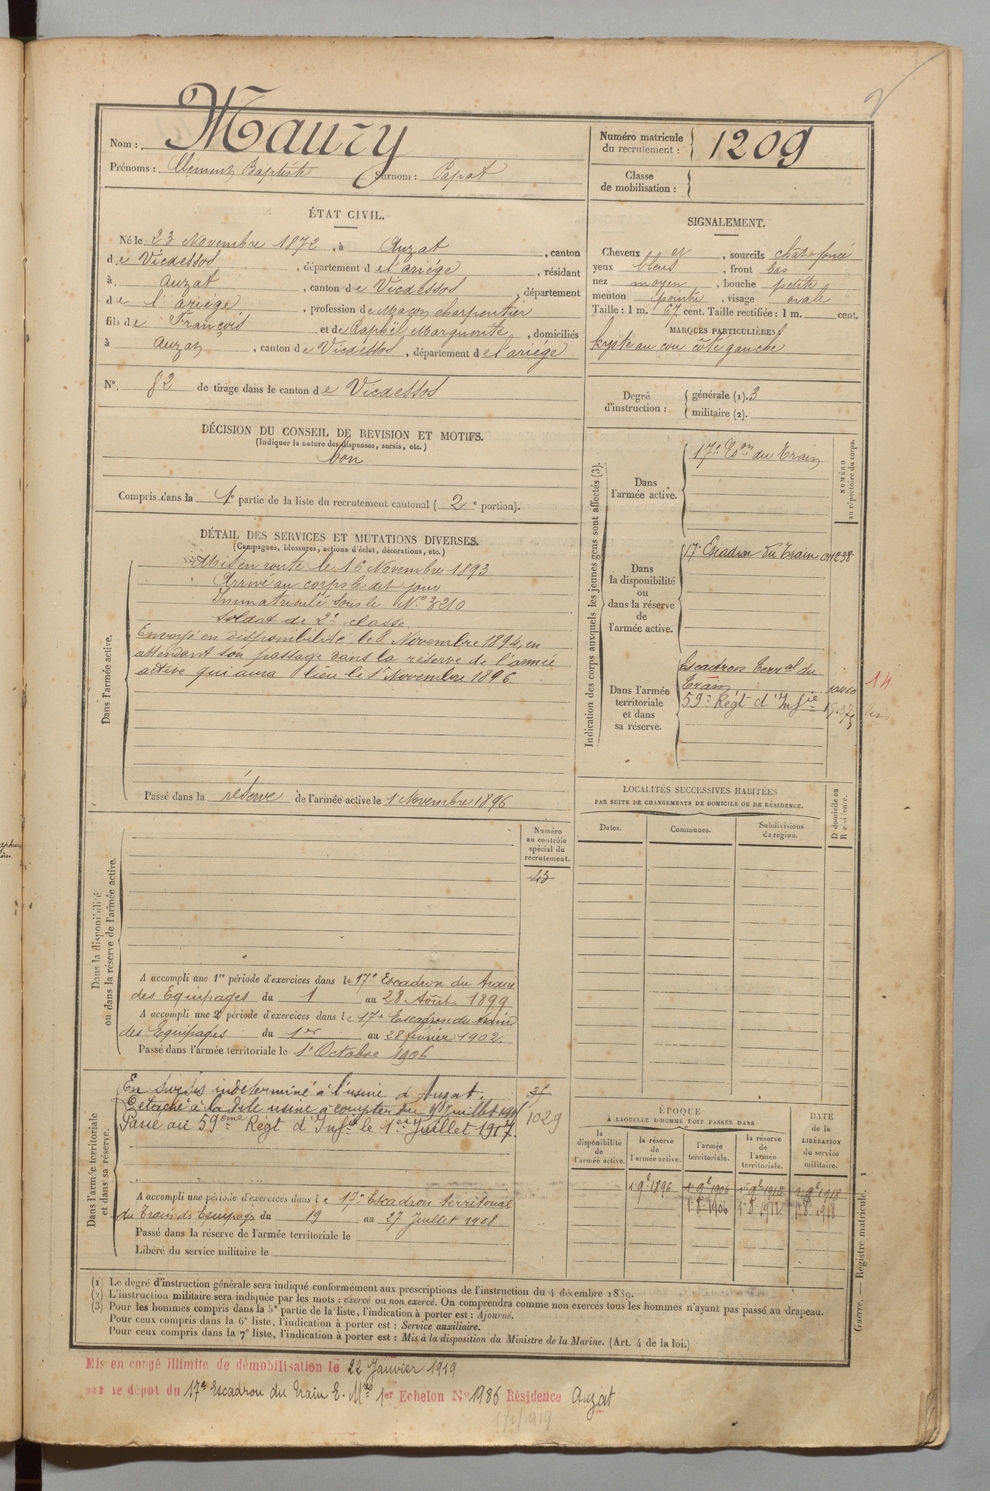 Nom : Maury
Prénoms : Clément Baptiste Surnom : Papat
Numéro matricule du recrutement : 1209
Classe de mobilisation :
ÉTAT CIVIL.
Né le 23 Novembre 1872, à Auzat, canton
de Vicdessos, département de l'ariége, résidant
à Auzat, canton de Vicdessos, département
de l'ariége, profession de Maçon charpentier
fils de François et de Raphël Marguerite, domiciliés
à Auzat, canton de Vicdessos, département de l'ariége
N° 82 de tirage dans le canton de Vicdessos
SIGNALEMENT.
Cheveux et, sourcils chat. foncé
yeux bleus, front bas
nez moyen, bouche petite
menton pointu, visage ovale
Taille : 1 m. 67 cent. Taille rectifiée : 1 m. cent.
MARQUES PARTICULIÈRES :
kyste au cou côté gauche
Degré d'instruction : générale (1). 3
militaire (2).
DÉCISION DU CONSEIL DE REVISION ET MOTIFS.
(Indiquer la nature des dispenses, sursis, etc.)
bon
Compris dans la 1e partie de la liste du recrutement cantonal (2e portion).
DÉTAIL DES SERVICES ET MUTATIONS DIVERSES.
(Campagnes, blessures, actions d'éclat, décorations, etc.)
Dans l'armée active.
Mis en route le 16 Novembre 1893
Arrivé au corps le dit jour
Immatriculé sous le N° 3210
Soldat de 2e classe.
Envoyé en disponibilité le 8 Novembre 1894, en
attendant son passage dans la réserve de l'armée
active qui aura lieu le 1er Novembre 1896.
Passé dans la réserve de l'armée active le 1 Novembre 1896
Indication des corps auxquels les jeunes gens sont affectés (3).
NUMÉRO au répertoire du corps.
Dans l'armée active.
17e Eson du Train
Dans la disponibilité ou dans la réserve de l'armée active.
17e Escadron du Train 04238
Dans l'armée territoriale et dans sa réserve.
Escadron Terral du
Train
59e Régt d'Infie
14
LOCALITÉS SUCCESSIVES HABITÉES
PAR SUITE DE CHANGEMENTS DE DOMICILE OU DE RÉSIDENCE.
Dates. Communes. Subdivisions de région. D domicile ou R résidence.
Dans la disponibilité ou dans la réserve de l'armée active.
Numéro au contrôle spécial du recrutement.
43
A accompli une 1re période d'exercices dans le 17e Escadron du train
des Equipages du 1 au 28 Août 1899
A accompli une 2e période d'exercices dans le 17e Escadron du train
des Equipages du 1er au 28 février 1902.
Passé dans l'armée territoriale le 1er Octobre 1906
Dans l'armée territoriale et dans sa réserve.
En sursis indéterminé à l'usine d'Auzat.
Détaché à la dite usine à compter du
Passé au 59ème Régt d'Infie le 1er Juillet 1917.
1029
A accompli une période d'exercices dans le 17e Escadron territorial
du Train des Equipages du 19 au 27 Juillet 1908
Passé dans la réserve de l'armée territoriale le
Libéré du service militaire le
ÉPOQUE
A LAQUELLE L'HOMME DOIT PASSER DANS
la disponibilité de l'armée active. la réserve de l'armée active. l'armée territoriale. la réserve de l'armée territoriale.
DATE de la LIBÉRATION du service militaire.
1 9bre 1896 1 9bre 1906 1 9bre 1912 1 9bre 1918
1 8 1906 1 8 1912 1 8 1918
(1) Le degré d'instruction générale sera indiqué conformément aux prescriptions de l'instruction du 4 décembre 1889.
(2) L'instruction militaire sera indiquée par les mots : exercé ou non exercé. On comprendra comme non exercés tous les hommes n'ayant pas passé au drapeau.
(3) Pour les hommes compris dans la 5e partie de la liste, l'indication à porter est : Ajourné.
Pour ceux compris dans la 6e liste, l'indication à porter est : Service auxiliaire.
Pour ceux compris dans la 7e liste, l'indication à porter est : Mis à la disposition du Ministre de la Marine. (Art. 4 de la loi.)
Guerre. — Registre matricule. 1
Mis en congé illimité de démobilisation le 22 Janvier 1919
par le dépôt du 17e Escadron du Train E. Mre 1er Echelon N° 1986 Résidence Auzat